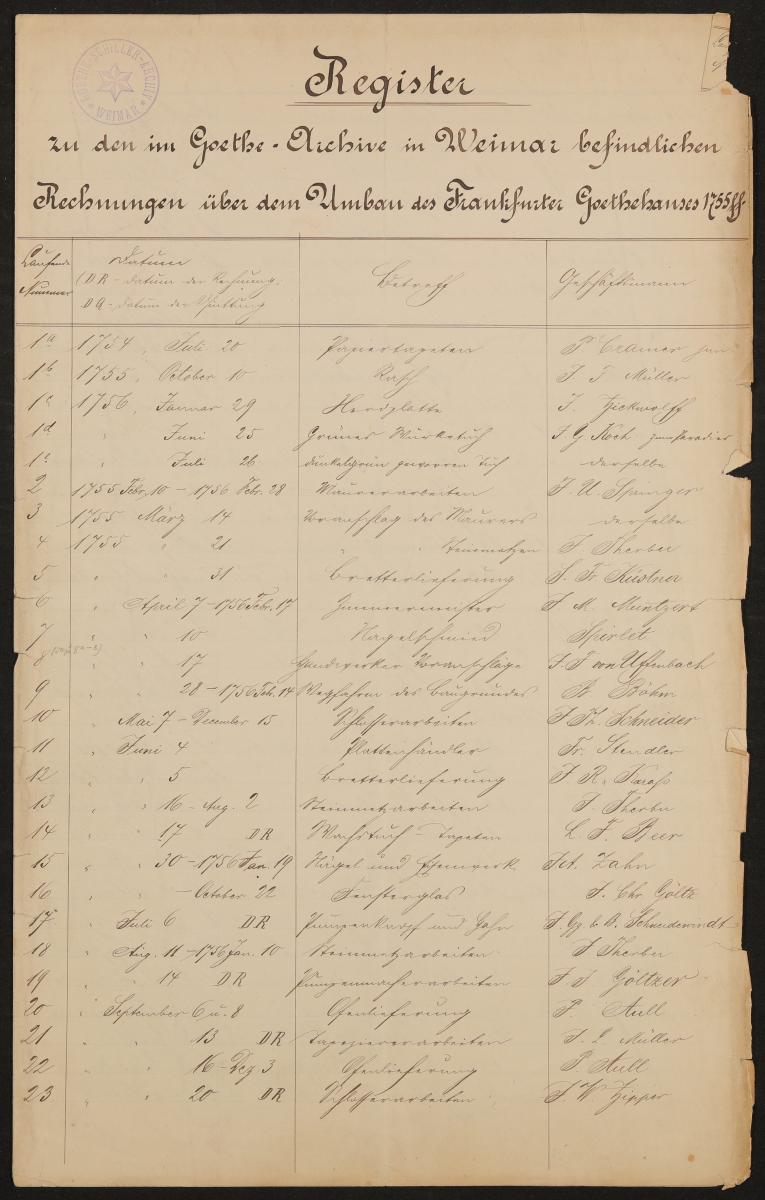 GOETHE-SCHILLER-ARCHIV WEIMAR
Register
zu den im Goethe-Archive in Weimar befindlichen
Rechnungen über dem Umbau des Frankfurter Goethehauses 1755ff
Laufende Nummer Datum Betreff Geschäftsmann
(DR - Datum der Rechnung.
DQ - Datum der Quittung
1a 1754, Juli 20 Papiertapeten P. Cramer jun
1b 1755, October 10 Rasch J. F. Müller
1c 1756, Januar 29 Herdplatte J. Zickwolff
1d " Juni 25 Grünes Tuch J. G. Koch zum Paradies
1e " Juli 26 dunkelgrün Tuch derselbe
2 1755 Febr. 10 - 1756 Febr. 28 Maurerarbeiten J. U. Springer
3 1755 März 14 Voranschlag des Maurers derselbe
4 1755 " 21 " " Steinmetzen J. Therbu
5 " " 31 Bretterlieferung J. Fr. Küstner
6 " April 7 - 1756 Febr. 17 Zimmermeister J. M. Müntzert
7 " " 10 Nagelschmied Spirlet
8 " " 17 Handwerker Voranschläge J. F. von Uffenbach
9 " " 28 - 1756 Feb. 14 Wegfahren des Baugrundes Böhm
10 " Mai 7 - December 15 Schlosserarbeiten J. Th. Schneider
11 " Juni 4 Plattenhändler Fr. Stendler
12 " " 5 Bretterlieferung J. R.
13 " " 16 - Aug. 2 Steinmetzarbeiten J. Therbu
14 " " 17 DR Wachstuch - Tapeten L. F. Beer
15 " " 30 - 1756 Jan. 19 Nägel und Eisenwerk Zahn
16 " " - October 22 Fensterglas J. Chr. Göltz
17 " Juli 6 DR Pumpenknopf und Hahn J. Gg. b. A. Schneidewindt
18 " Aug. 11 - 1756 Jan. 10 Steinmetzarbeiten J. Therbu
19 " " 14 DR Pumpenmacherarbeiten J. J. Göltzer
20 " September 6 u. 8 Ofenlieferung P. Aull
21 " " 13 DR Tapeziererarbeiten J. L. Müller
22 " " 16 - Dez 3 Ofenlieferung P. Aull
23 " " 20 DR Schlosserarbeiten J. W. Zipper